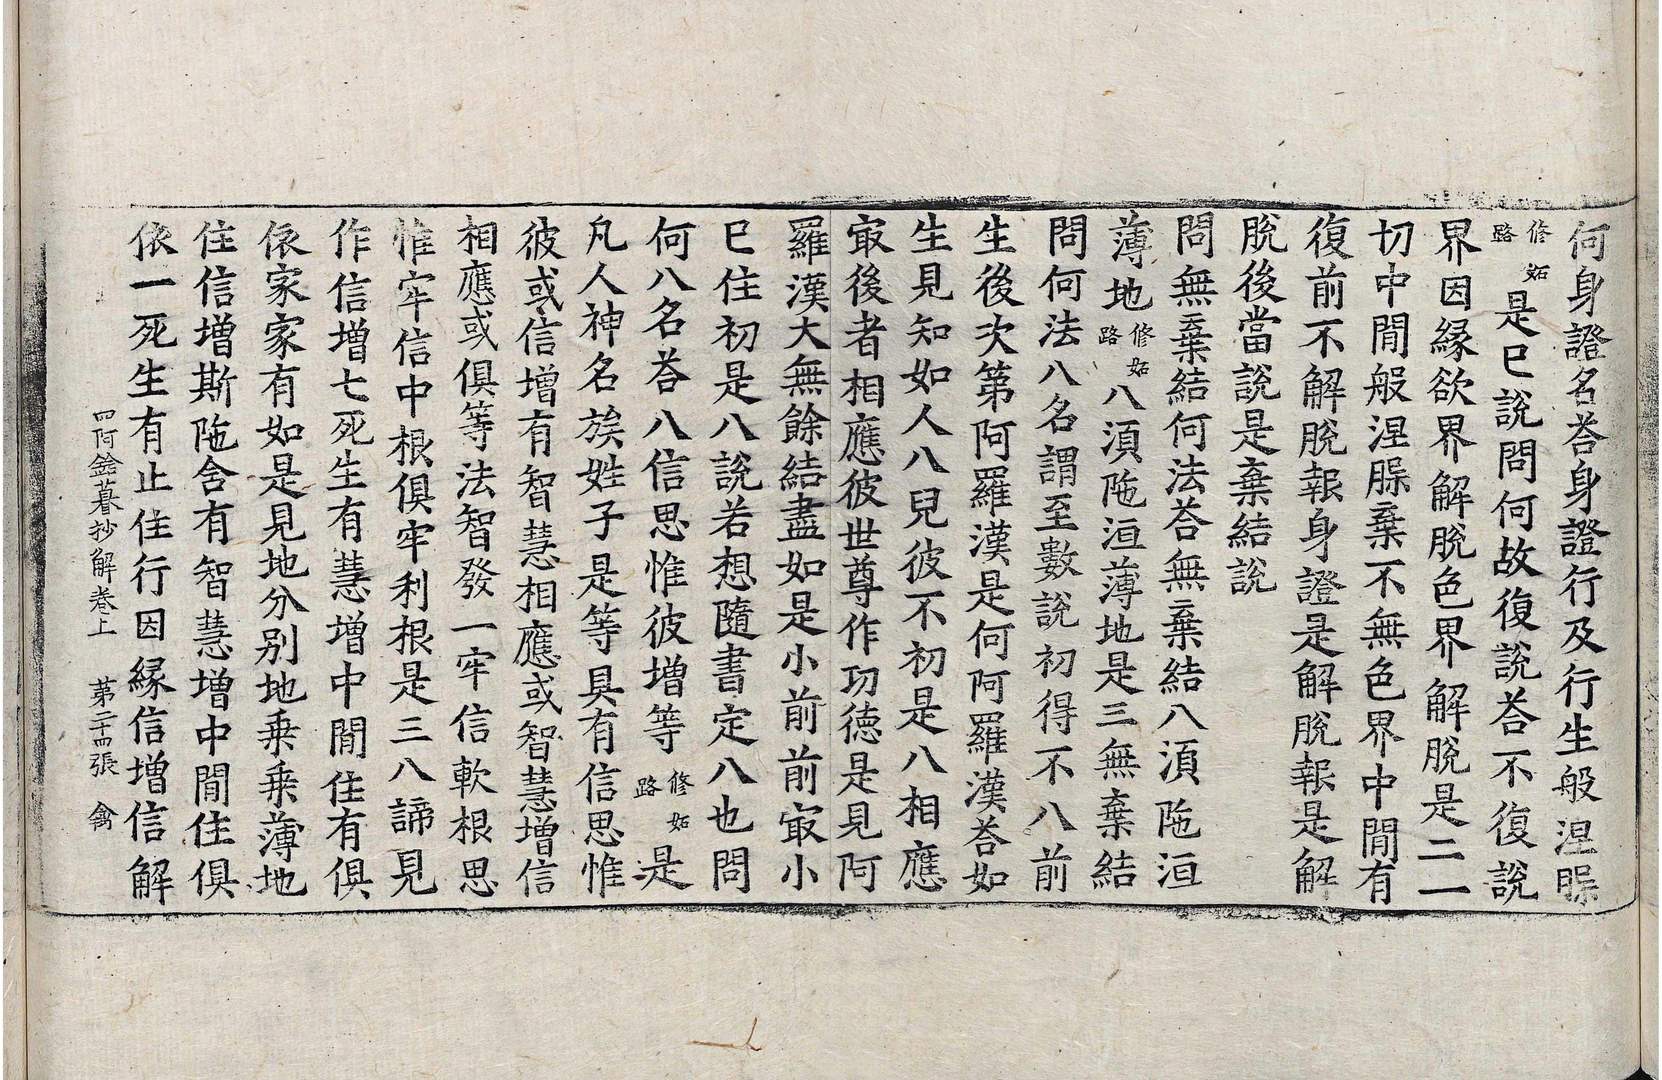 何身證名荅身證行及行生般涅腂
修妬路是已說問何故復說荅不復說
界因緣欲界解脫色界解脫是二一
切中閒般涅腂棄不無色界中閒有
復前不解脫報身證是解脫報是解
脫後當說是棄結說
問無棄結何法荅無棄結八須陁洹
薄地修妬路八須陁洹薄地是三無棄結
問何法八名謂至數說初得不八前
生後次第阿羅漢是何阿羅漢荅如
生見知如人八兒彼不初是八相應
㝡後者相應彼世尊作功德是見阿
羅漢大無餘結盡如是小前前㝡小
已住初是八說若想隨書定八也問
何八名荅八信思惟彼增等修妬路是
凡人神名族姓子是等具有信思惟
彼或信增有智慧相應或智慧增信
相應或俱等法智發一牢信軟根思
惟牢信中根俱牢利根是三八諦見
作信增七死生有慧增中閒住有俱
依家家有如是見地分别地乘乘薄地
住信增斯陁含有智慧增中閒住俱
依一死生有止住行因緣信增信解
四阿鋡暮抄解卷上　第二十四張　禽